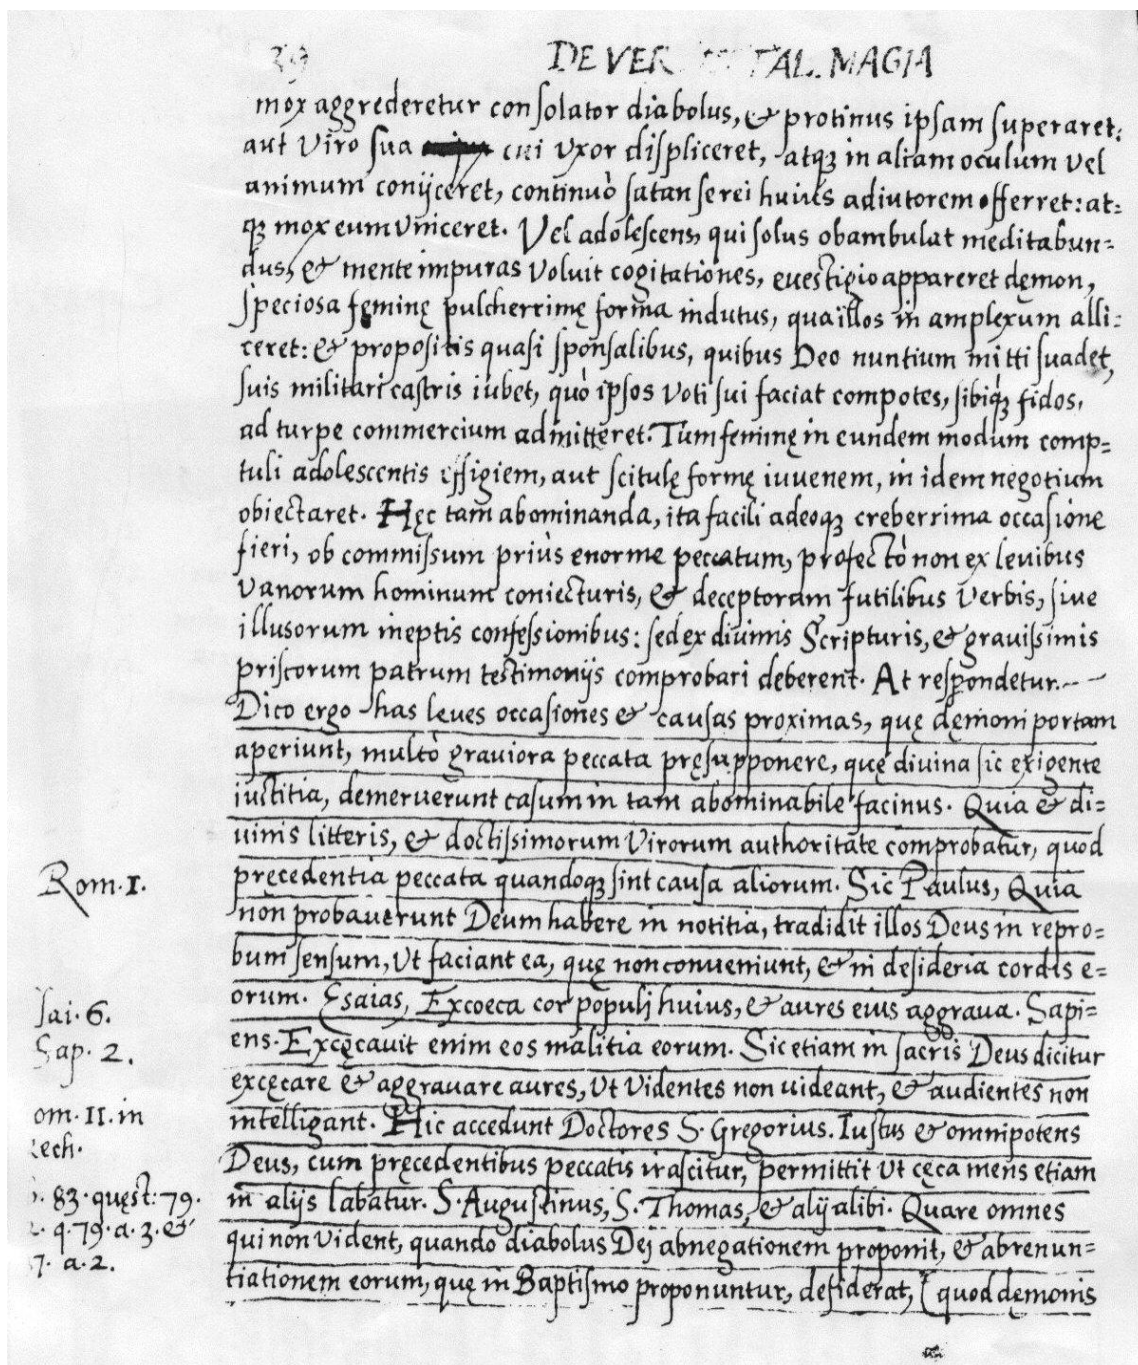 39 DE VER TAL. MAGIA
mox aggrederetur consolator diabolus, & protinus ipsam superaret:
aut Viro sua cui vxor displiceret, atq; in aliam oculum vel
animum conijceret, continuò satan se rei huius adiutorem offerret: at=
q; mox eum vinceret. Vel adolescens, qui solus obambulat meditabun=
dus, & mente impuras voluit cogitationes, euestigio appareret dęmon,
speciosa feminę pulcherrimę forma indutus, qua illos in amplexum alli=
ceret: & propositis quasi sponsalibus, quibus Deo nuntium mitti suadet,
suis militari castris iubet, quò ipsos voti sui faciat compotes, sibiq́; fidos,
ad turpe commercium admitteret. Tum feminę in eundem modum comp=
tuli adolescentis effigiem, aut scitulę formę iuvenem, in idem negotium
obiectaret. Hęc tam abominanda, ita facili adeoq; creberrima occasione
fieri, ob commissum priùs enorme peccatum, profectò non ex leuibus
vanorum hominum coniecturis, & deceptorum futilibus verbis, siue
illusorum ineptis confessionibus: sed ex diuinis Scripturis, & gravissimis
priscorum patrum testimonijs comprobari deberent. At respondetur.--
Dico ergo has leues occasiones & causas proximas, quę dęmoni portam
aperiunt, multò grauiora peccata pręsupponere, quę diuina sic exigente
iustitia, demeruerunt casum in tam abominabile facinus. Quia & di=
uinis litteris, & doctissimorum Virorum authoritate comprobatur, quod
Rom. I. pręcedentia peccata quandoq; sint causa aliorum. Sic Paulus, Quia
non probauerunt Deum habere in notitia, tradidit illos Deus in repro=
bum sensum, Vt faciant ea, quę non conueniunt, & in desideria cordis e=
Isai. 6. orum. Esaias, Excoeca cor populi huius, & aures eius aggraua. Sapi=
Sap. 2. ens. Excęcauit enim eos malitia eorum. Sic etiam in sacris Deus dicitur
excęcare & aggravare aures, Vt Videntes non uideant, & audientes non
om. II. in intelligant. Hic accedunt Doctores S. Gregorius. Iustus & omnipotens
zech. Deus, cum pręcedentibus peccatis irascitur, permittit Vt cęca mens etiam
. 83. quęst. 79. in alijs labatur. S. Augustinus, S. Thomas, & alij alibi. Quare omnes
q. 79. a. 3. & qui non Vident, quando diabolus Dej abnegationem proponit, & abrenun=
7. a. 2. tiationem eorum, quę in Baptismo proponuntur, desiderat, ( quod dęmonis